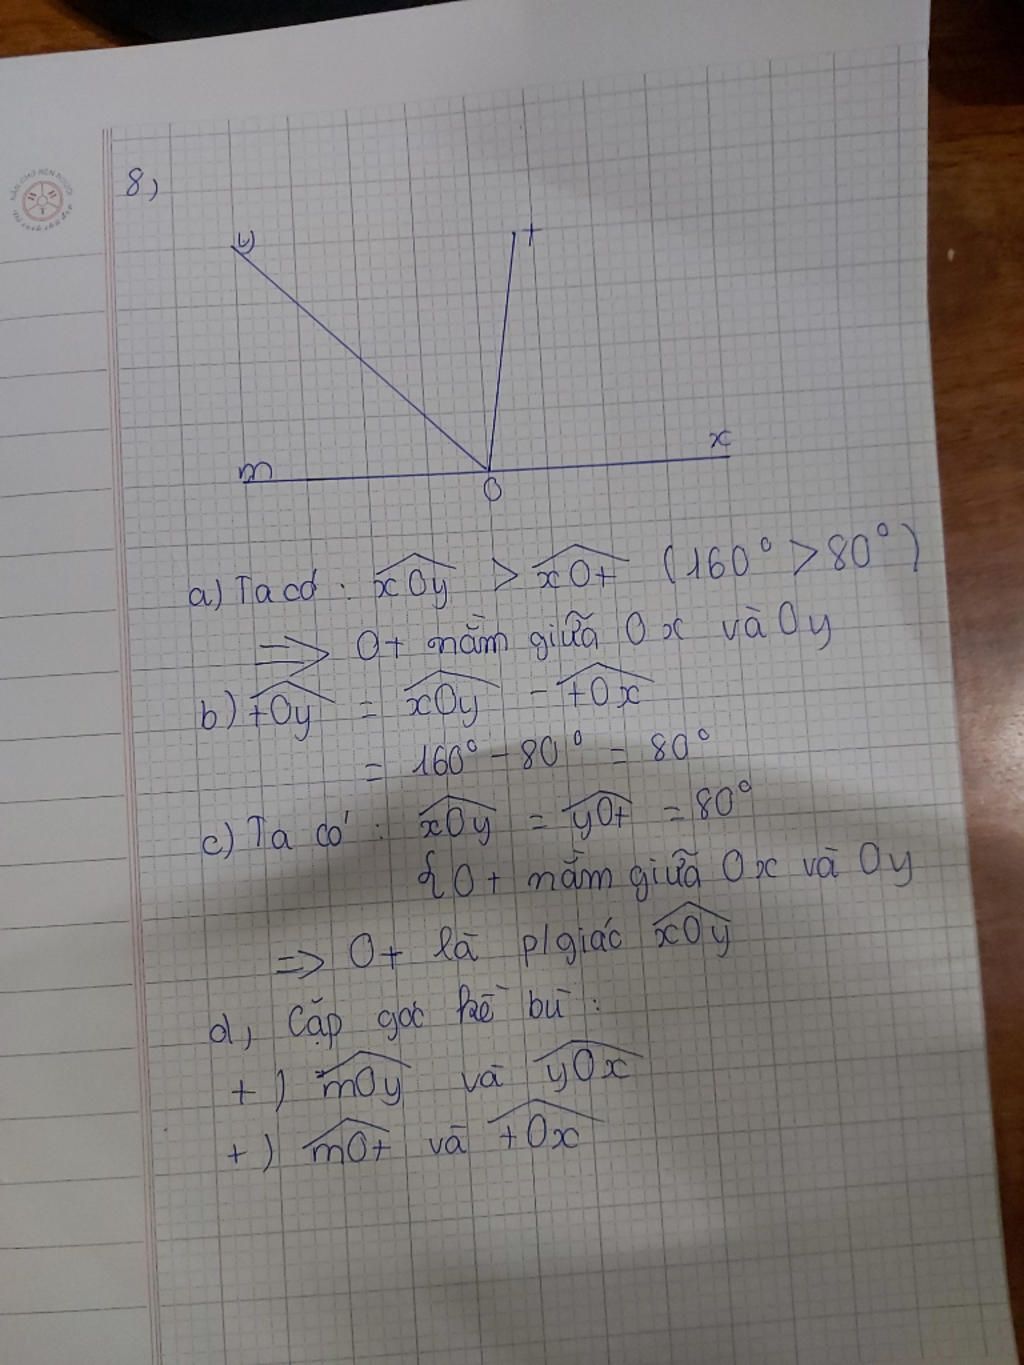 8)
y
t
m
x
O
a) Ta có : xOy > xOt (160° > 80°)
=> Ot nằm giữa Ox và Oy
b) tOy = xOy - tOx
= 160° - 80° = 80°
c) Ta có : xOy = yOt = 80°
{ Ot nằm giữa Ox và Oy
=> Ot là p/giác xOy
d, Cặp góc kề bù :
+ ) mOy và yOx
+ ) mOt và tOx